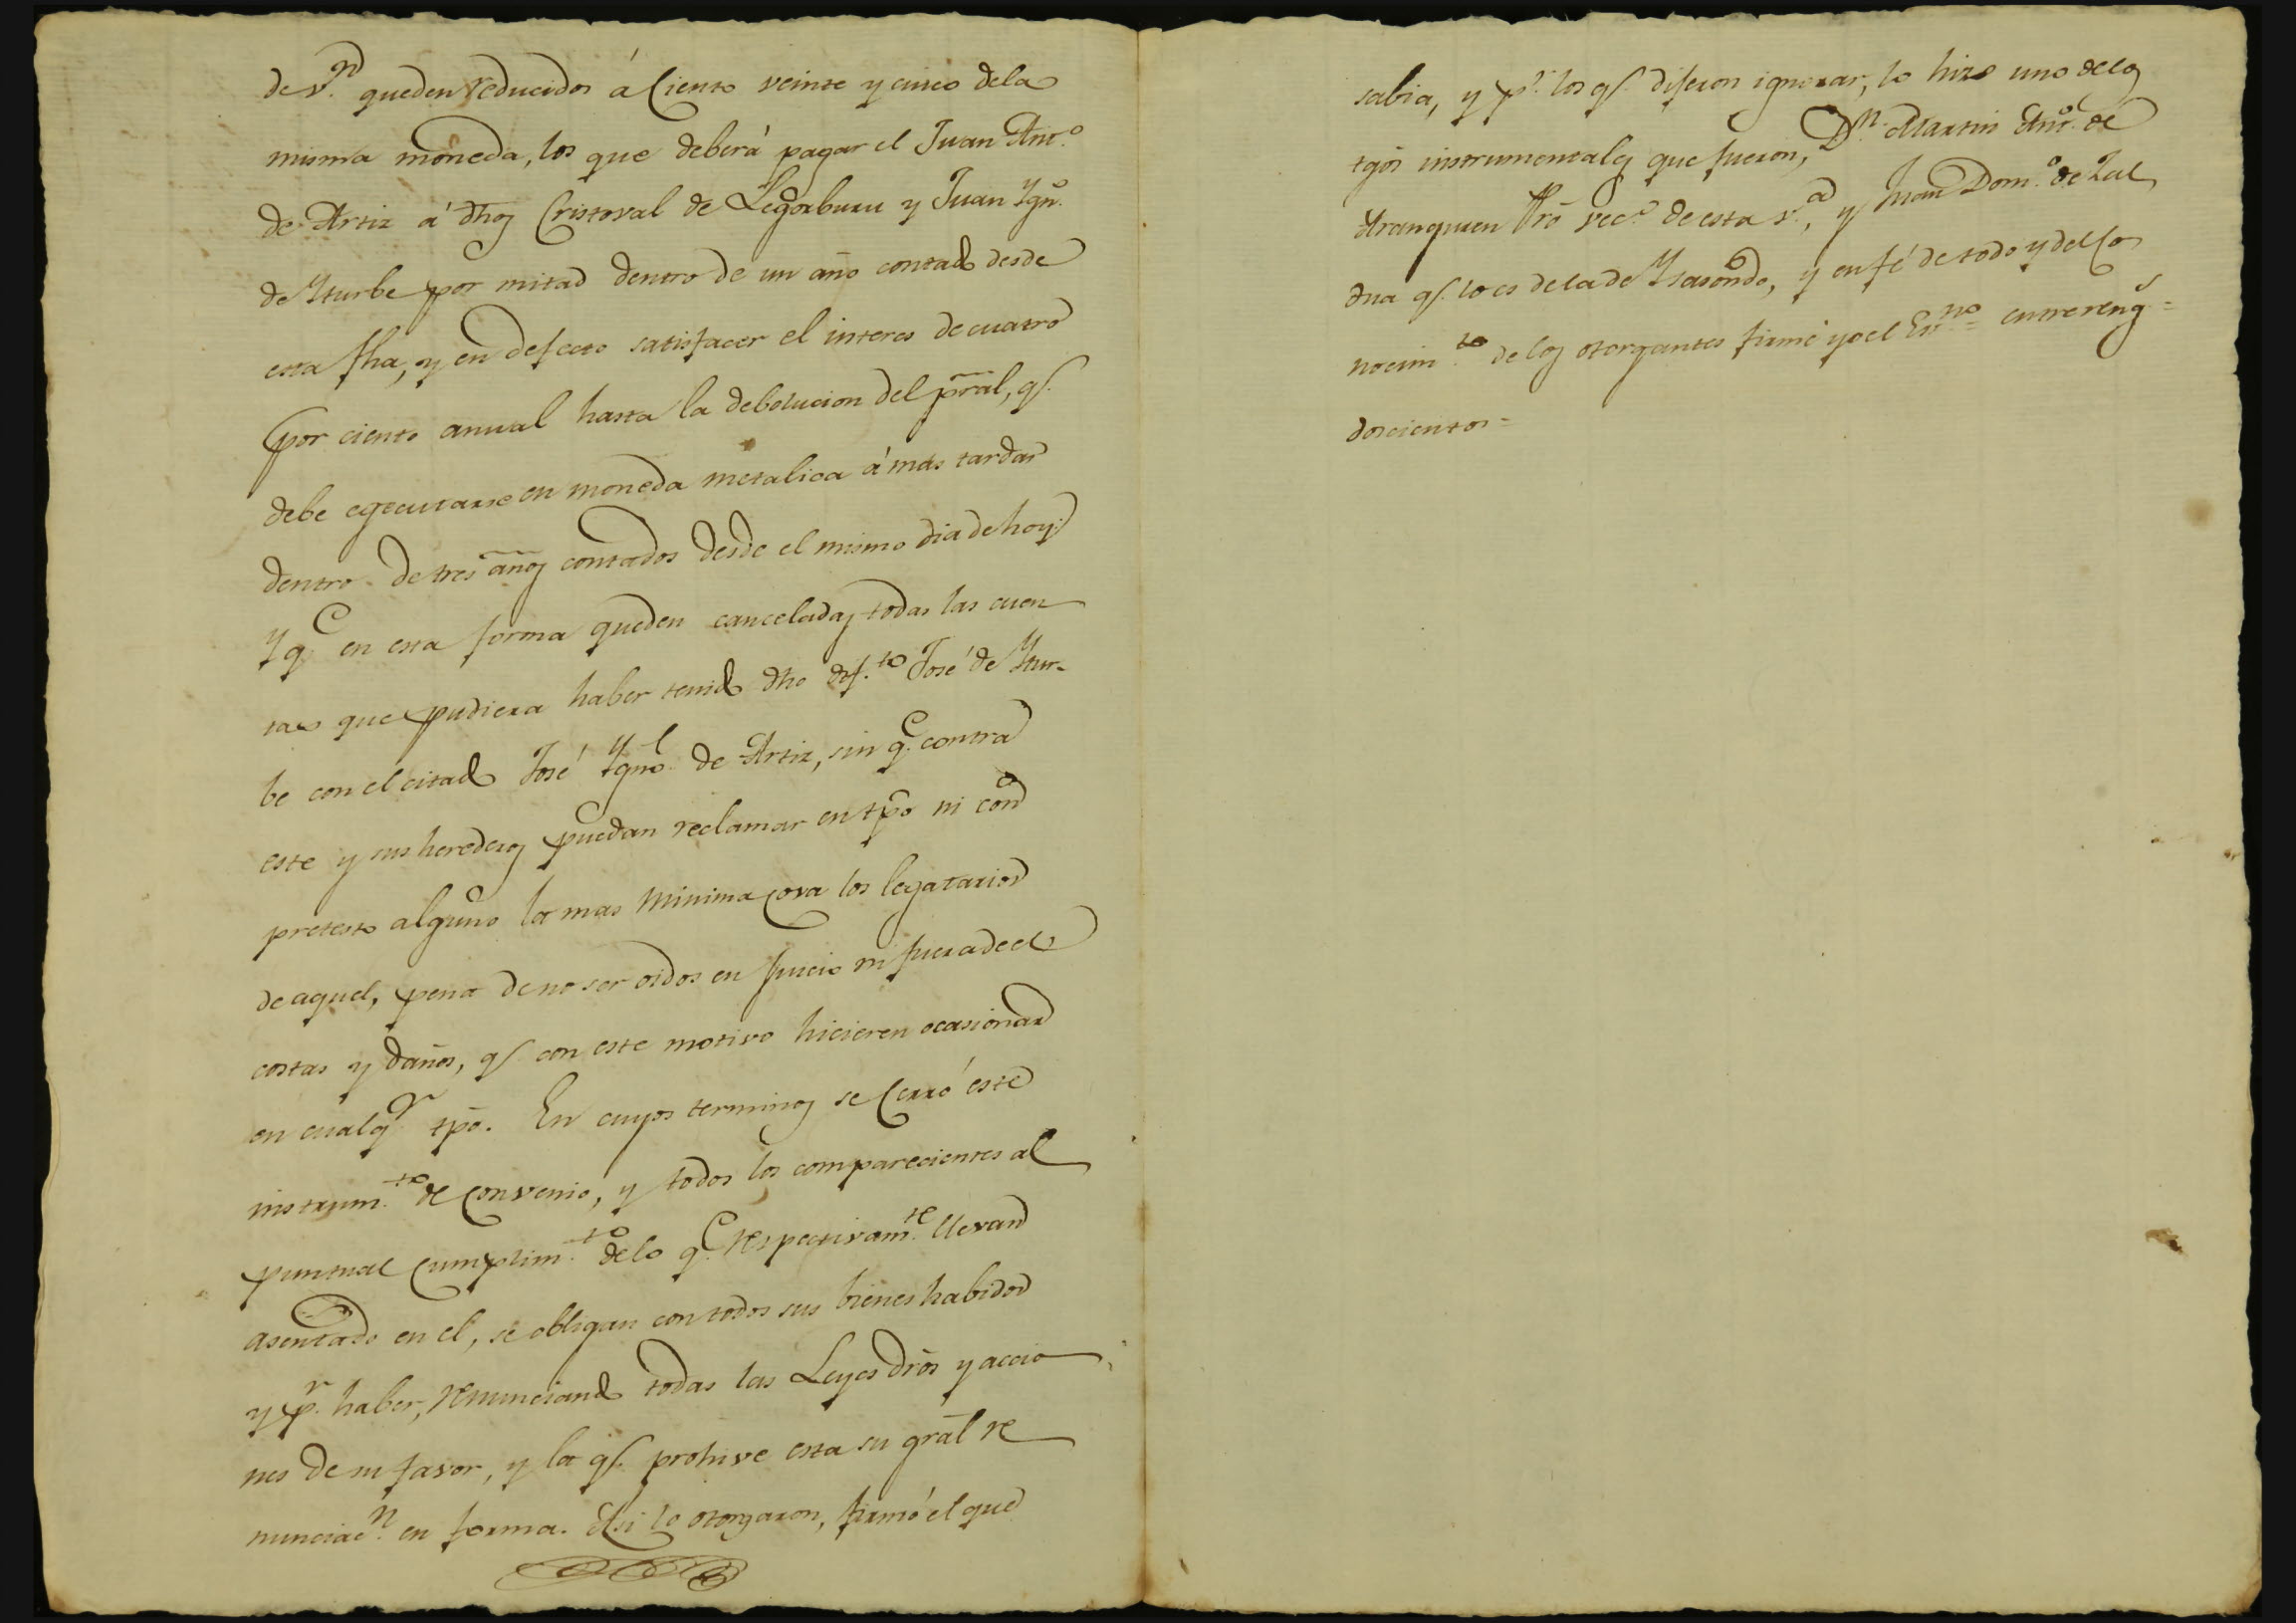 de v.n queden reducidos á Ciento veinte y cinco dela
misma moneda, los que deberá pagar el Juan Anto.
de Artiz á dhos Cristoval de Legorburu y Juan Ygno.
de Yturbe por mitad dentro de un año contado desde
esta fha, y en defecto satisfacer el interes de cuatro
por ciento anual hasta la debolucion del pral, qe.
debe egecutarse en moneda metalica á mas tardar
dentro de tres años contados desde el mismo dia de hoy:
Y qe en esta forma queden canceladas todas las cuen
tas que pudiera haber tenido dho dif.to José de Ytur-
be con el citado José Ygno. de Artiz, sin qe. contra
este y sus herederos puedan reclamar en tpo ni con
pretesto alguno la mas minima cosa los legatarios
de aquel, pena de no ser oidos en Juicio ni fuera de el
costas y daños, qe. con este motivo hicieren ocasionar
en cualqr. tpo. En cuyos terminos se Cerró este
instrum.to de Convenio, y todos los comparecientes al
puntual Cumplim.to delo qe. respectivam.te llevan
asentado en el, se obligan con todos sus bienes habidos
y pr. haber, renunciando todas las Leyes dros y accio
nes de su favor, y la qe. prohive esta su gral re
nunciac.n en forma. Asi lo otorgaron, firmó el que
sabia, y pr. los qe. dijeron ignorar, lo hizo uno delos
tgos instrumentales que fueron, Dn. Martin Anto. de
Aranguren Pro vec.o de esta v.a, y Juan Dom.o de Zal
dua qe. lo es dela de Ysasondo, y en fé de todo y del Co
nocim.to de los otorgantes firmé yo el Es.no = entrereng.s =
doscientos =